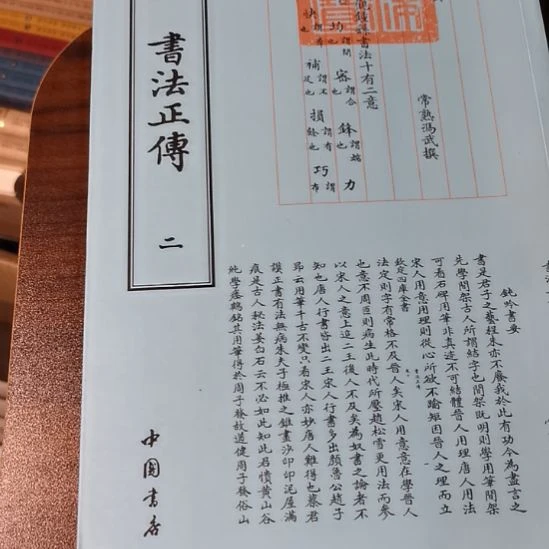 書法正傳
二
中國書店
觀鍾繇書法十有二意
常熟馮武撰
均
密
鋒
力
快
補
損
巧
鈍吟書要
書是君子之藝程朱亦不廢我於此有功今為盡言之
先學間架古人所謂結字也間架既明則學用筆間架
可看石碑用筆非真迹不可結體晉人用理唐人用法
宋人用意用理則從心所欲不踰矩因晉人之理而立
欽定四庫全書
法定則字有常格不及晉人矣宋人用意意在學晉人
也意不周匝則病生此時代所壓趙松雪更用法而參
以宋人之意上追二王後人不及矣為奴書之論者不
知也唐人行書皆出二王宋人行書多出顏魯公趙子
昂云用筆千古不變只看宋人亦妙唐人難得也蔡君
謨正書有法無病朱夫子極推之錐畫沙印印泥屋漏
痕是古人秘法姜白石云不必如此知此君憒黃山谷
純學瘞鶴銘其用筆得於周子發故遒健周子發俗山